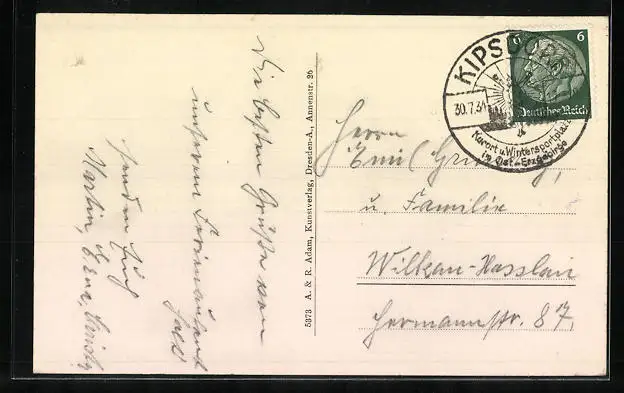 Die besten Grüße von
unserem Ferienaufent
halt
senden Euch
Martin, Erna,
5373 A. & R. Adam, Kunstverlag, Dresden-A., Annenstr. 26
KIPSDORF
30.7.34
Kurort u. Wintersportplatz
im Ost-Erzgebirge
6 6
Deutsches Reich
Herrn
Emil
u. Familie
Wilkau-Hasslau
Hermannstr. 87,